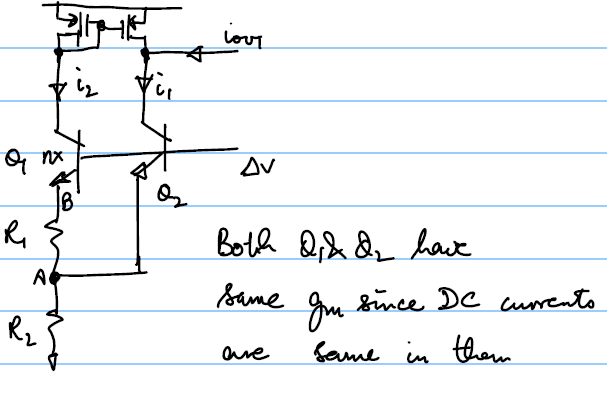 iout
i2
i1
Q1 nx
ΔV
B
Q2
R1
Both Q1 & Q2 have
A
same gm since DC currents
R2
are same in them